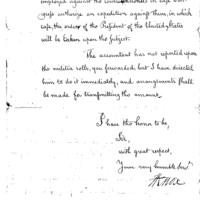 employed against the in case Con-
gress authorize an expedition against them, in which
case, the orders of the President of the United States
will be taken upon the subject.
The accountant has not reported upon
the militia rolls, you forwarded but I have directed
him to do it immediately, and arrangements shall
be made for transmitting the amount.
I have the honor to be,
Sir,
with great respect,
Your very humble Servt
H Knox